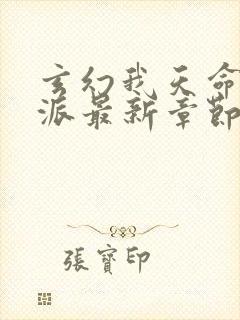 玄幻我天命
派最新章節
張寶印